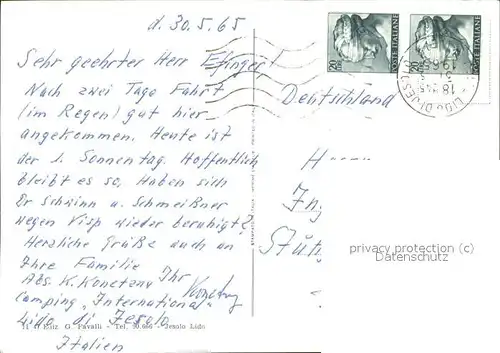 d. 30.5.65
Sehr geehrter Herr Efinger
Nach zwei Tage Fahrt
(im Regen) gut hier
angekommen. Heute ist
der 1. Sonnentag. Hoffentlich
bleibt es so, Haben sich
Dr Schwinn u. Schmeißner
wegen Visp wieder beruhigt?
Herzliche Grüße auch an
Ihre Familie
Ihr
Abs. K. Konetzny
Camping "International"
Lido di Jesolo
Italien
G. Favalli - Tel. 90.686 - Jesolo Lido
POSTE ITALIANE
20
POSTE ITALIANE
20
LIDO DI JESOLO
Deutschland
H
In
Stutt
privacy protection (c)
Datenschutz